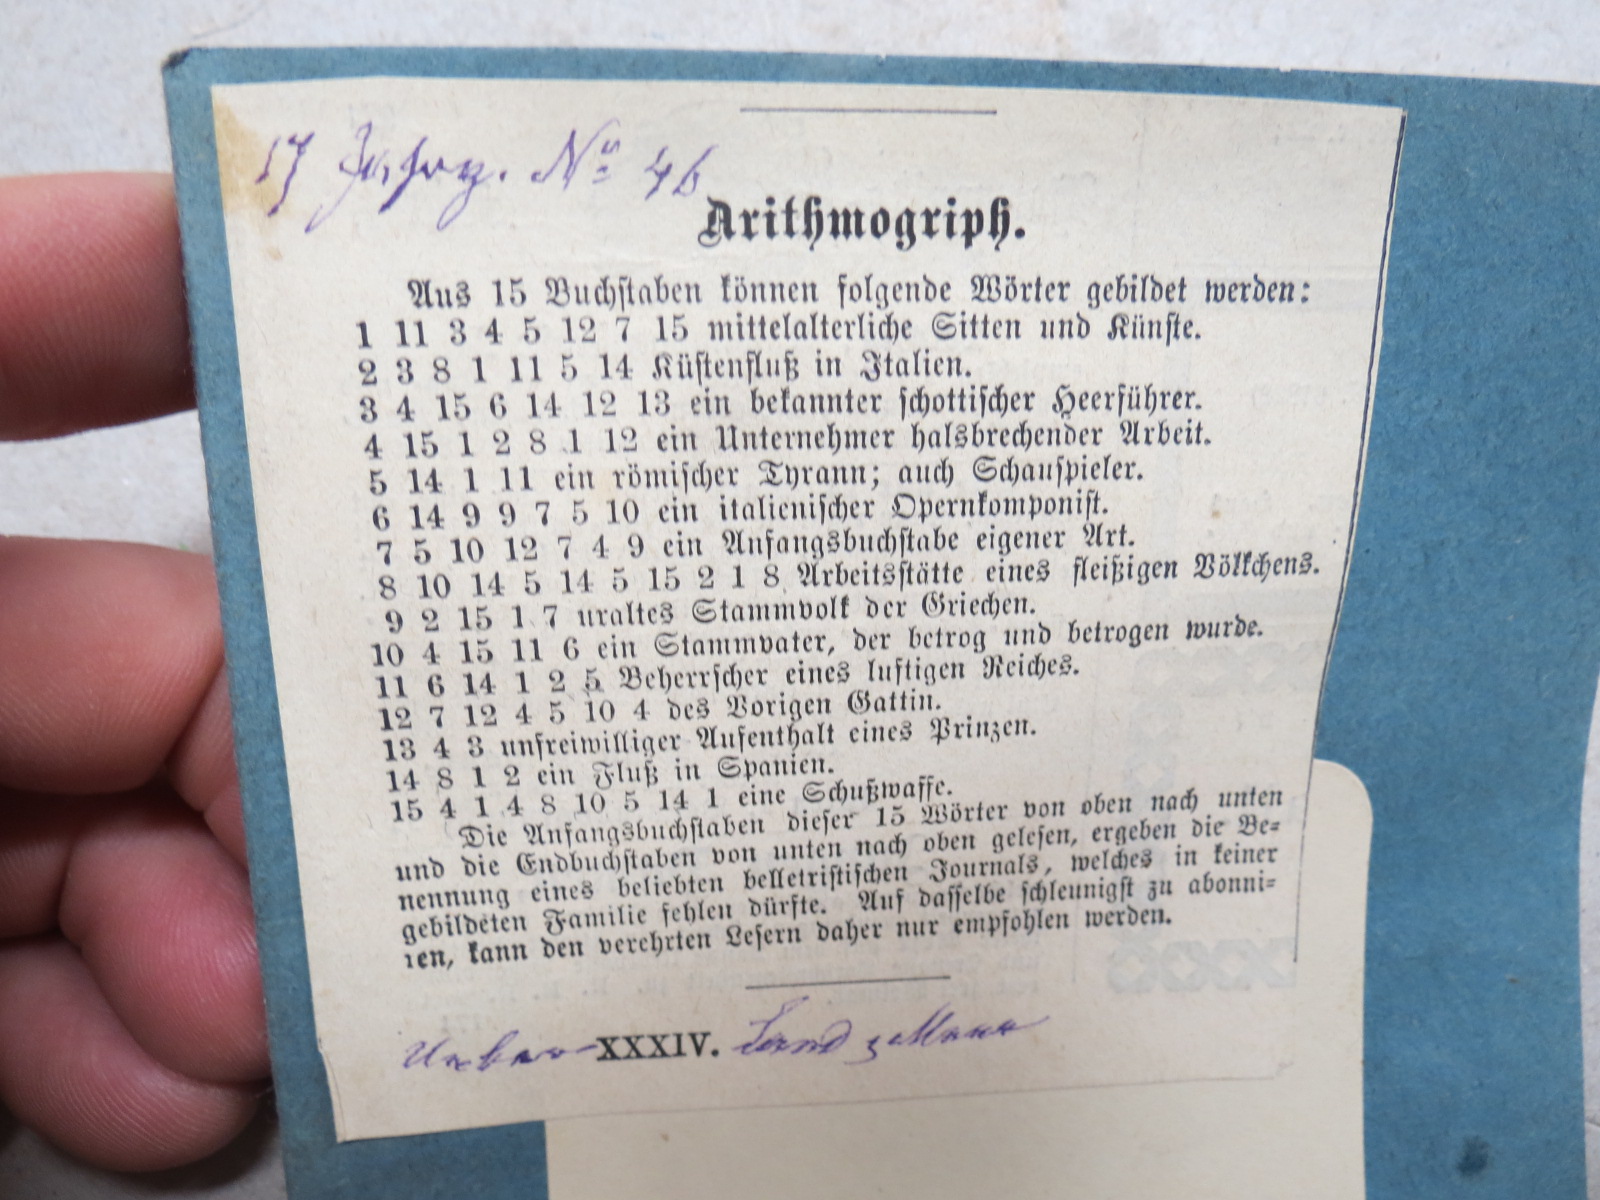 17 Jahrg. No 46
Arithmogriph.
Aus 15 Buchstaben können folgende Wörter gebildet werden:
1 11 3 4 5 12 7 15 mittelalterliche Sitten und Künste.
2 3 8 1 11 5 14 Küstenfluß in Italien.
3 4 15 6 14 12 13 ein bekannter schottischer Heerführer.
4 15 1 2 8 1 12 ein Unternehmer halsbrechender Arbeit.
5 14 1 11 ein römischer Tyrann; auch Schauspieler.
6 14 9 9 7 5 10 ein italienischer Opernkomponist.
7 5 10 12 7 4 9 ein Anfangsbuchstabe eigener Art.
8 10 14 5 14 5 15 2 1 8 Arbeitsstätte eines fleißigen Völkchens.
9 2 15 1 7 uraltes Stammvolk der Griechen.
10 4 15 11 6 ein Stammvater, der betrog und betrogen wurde.
11 6 14 1 2 5 Beherrscher eines luftigen Reiches.
12 7 12 4 5 10 4 des Vorigen Gattin.
13 4 3 unfreiwilliger Aufenthalt eines Prinzen.
14 8 1 2 ein Fluß in Spanien.
15 4 1 4 8 10 5 14 1 eine Schußwaffe.
Die Anfangsbuchstaben dieser 15 Wörter von oben nach unten
und die Endbuchstaben von unten nach oben gelesen, ergeben die Be=
nennung eines beliebten belletristischen Journals, welches in keiner
gebildeten Familie fehlen dürfte. Auf dasselbe schleunigst zu abonni=
ren, kann den verehrten Lesern daher nur empfohlen werden.
Ueber XXXIV. Land z Meer